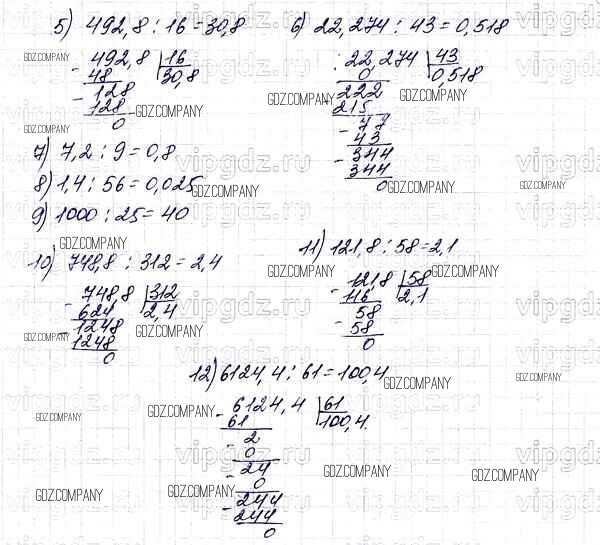 5) 492,8 : 16 = 30,8
492,8 | 16
48 | 30,8
128
128
0
6) 22,274 : 43 = 0,518
22,274 | 43
0 | 0,518
222
215
77
43
344
344
0
7) 7,2 : 9 = 0,8
8) 1,4 : 56 = 0,025
9) 1000 : 25 = 40
10) 748,8 : 312 = 2,4
748,8 | 312
624 | 2,4
1248
1248
0
11) 121,8 : 58 = 2,1
121,8 | 58
116 | 2,1
58
58
0
12) 6124,4 : 61 = 100,4
6124,4 | 61
61 | 100,4
2
0
24
0
244
244
0
GDZ.COMPANY
vipgdz.ru